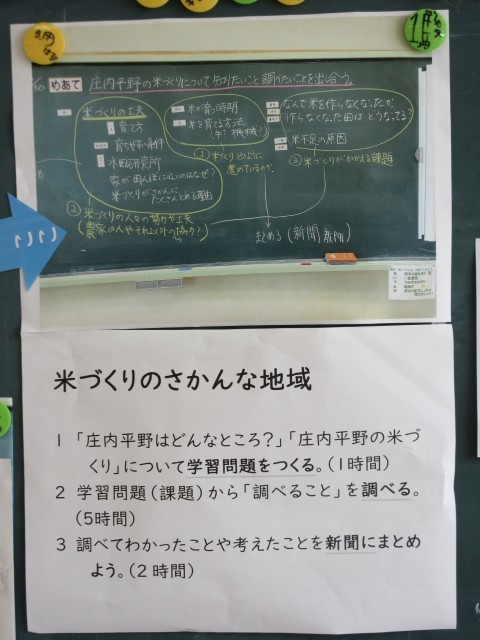 めあて 庄内平野の米づくりについて知りたいこと調べたいことを出し合う。
米づくりの工夫
育て方
育ちやすい条件
水田研究所
家が田んぼに近いのはなぜ?
米づくりがさかんに
たくさんとれる理由
米が育つ時期
米を育てる方法
なんで米を作らなくなったか
作らなくなった田はどうなってる?
米不足の原因
① 米づくりはどのように
進めているのか。
② 米づくりの人々の努力や工夫
③ 米づくりがかかえる課題
まとめる(新聞
米づくりのさかんな地域
1 「庄内平野はどんなところ?」「庄内平野の米づ
くり」について学習問題をつくる。(1時間)
2 学習問題(課題)から「調べること」を調べる。
(5時間)
3 調べてわかったことや考えたことを新聞にまとめ
よう。(2時間)